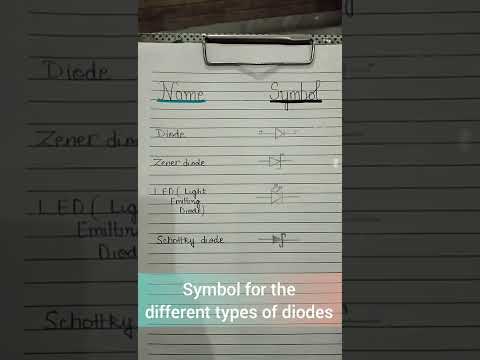 Name Symbol
Diode
Zener diode
LED ( Light
Emitting
Diode)
Schottky diode
Symbol for the
different types of diodes
Diode
Zener diode
LED ( Light
Emitting
Diode
Schottky